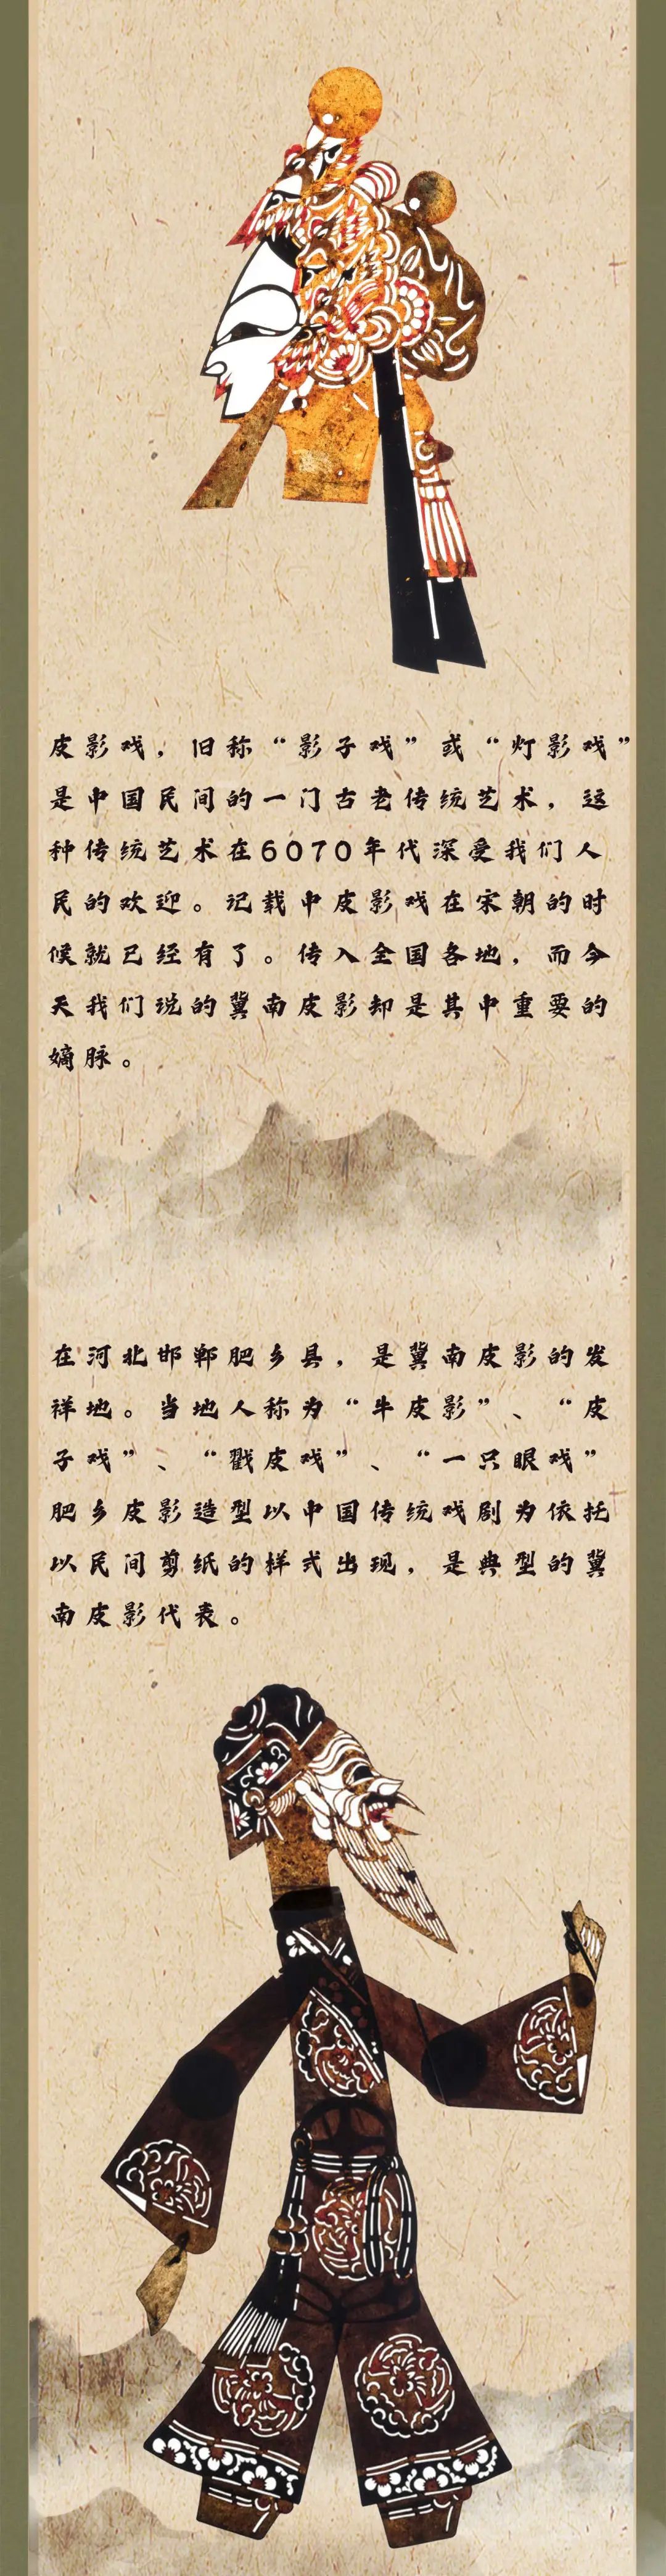 皮影戏，旧称“影子戏”或“灯影戏”
是中国民间的一门古老传统艺术，这
种传统艺术在6070年代深受我们人
民的欢迎。记载中皮影戏在宋朝的时
候就已经有了。传入全国各地，而今
天我们说的冀南皮影却是其中重要的
嫡脉。
在河北邯郸肥乡县，是冀南皮影的发
祥地。当地人称为“牛皮影”、“皮
子戏”、“戳皮戏”、“一只眼戏”
肥乡皮影造型以中国传统戏剧为依托
以民间剪纸的样式出现，是典型的冀
南皮影代表。